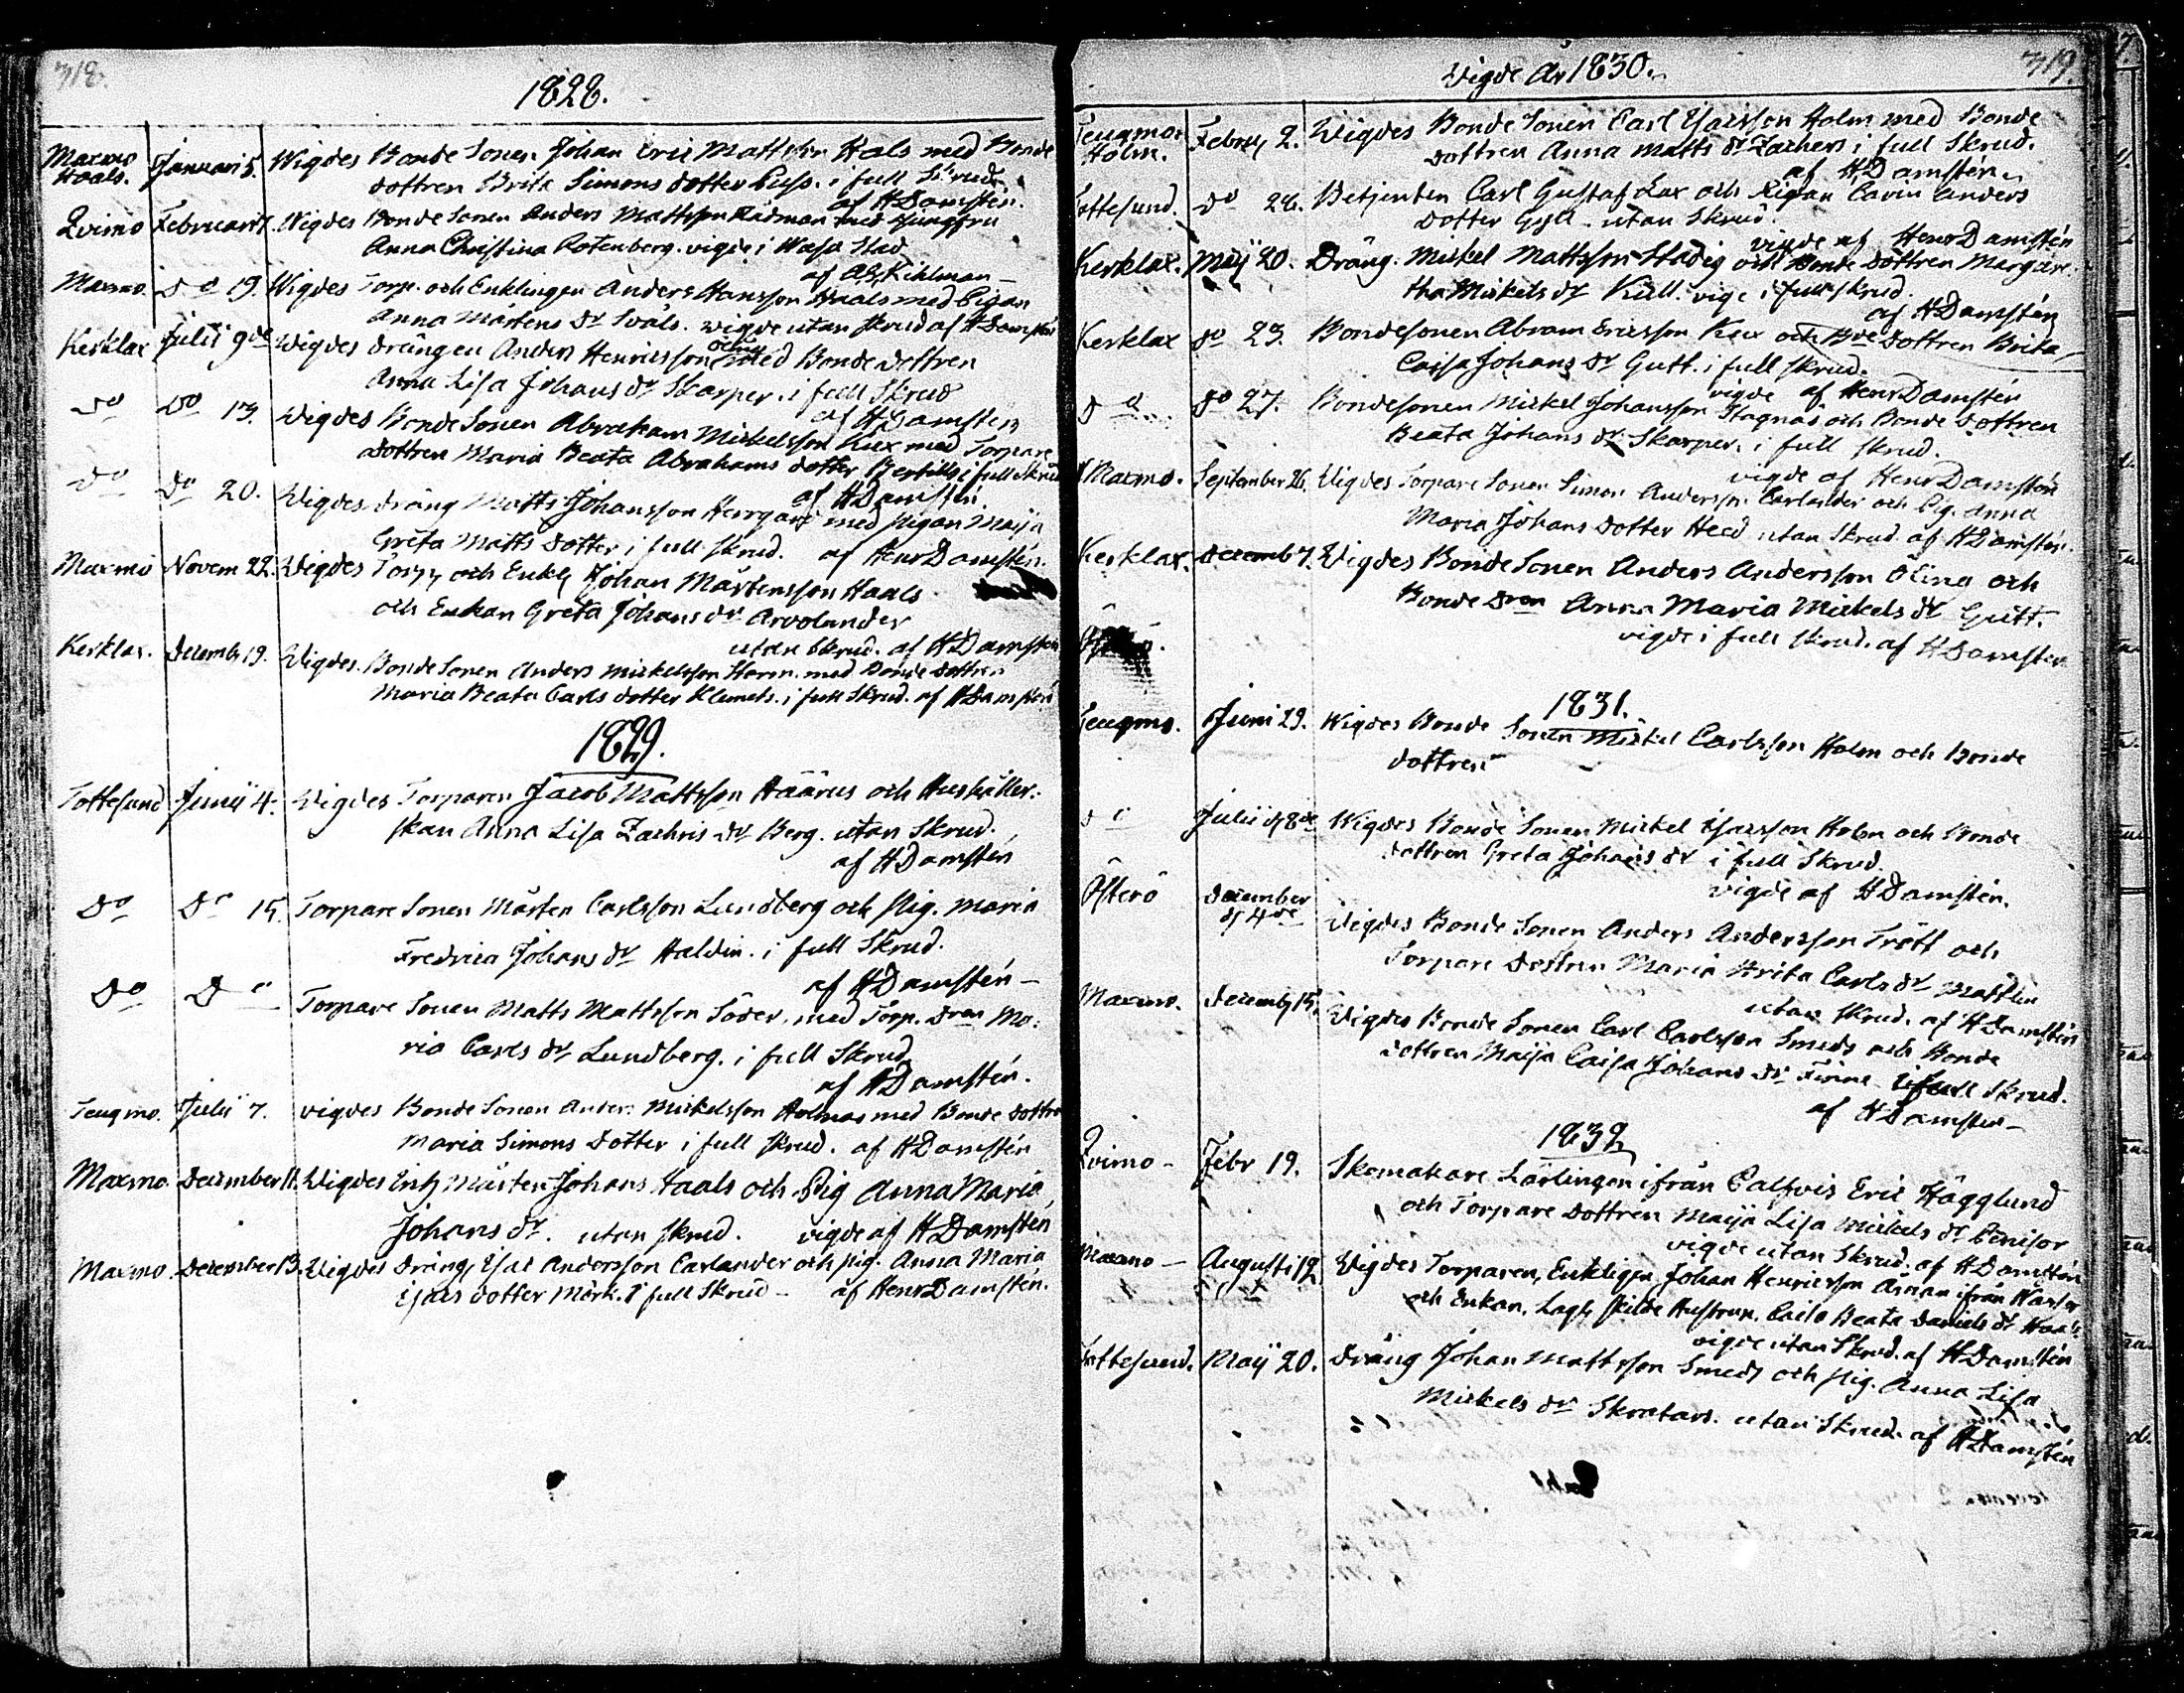 318.
1828.
Maxmo Haals. Januari 5. Wigdes Bonde Sonen Johan Eric Mattsson Hals med Bonde
dottren Brita Simons dotter i full Skrud
af HDamstén.
Qvimo Februarii Wigdes Bonde Sonen Anders Mattsson med Jungfru
Anna Christina Rotenberg. vigde i Wasa Stad
af
Maxmo. do 19. Wigdes Torp. och Enklingen Anders Hansson Haals med Pigan
Anna Mårtens dr Svåls. wigde utan skrud af HDamstén
Kerklax Julii 9de Wigdes drängen Anders Henricsson med Bonde dottren
Anna Lisa Johans dr Skarper. i full Skrud
af HDamstén
do do 13. Wigdes Bonde Sonen Abraham Mickelsson Kux med Torpare
dottren Maria Beata Abrahams dotter Bertills i full Skrud
af HDamstén.
do do 20. Wigdes dräng Matts Johansson Herrgård med pigan Maija
Greta Matts dotter i full skrud. af HenrDamstén.
Maxmo Novem 22. Wigdes Torp. och Enkl. Johan Mårtensson Haals
och Enkan Greta Johans dr Arvolander
utan Skrud. af HDamstén
Kerklax. Decemb 19. Wigdes. Bonde Sonen Anders Mickelsson Harm. med Bonde dottren
Maria Beata Carls dotter Klemets. i full Skrud. af HDamstén
1829.
Tottesund Junii 4. Wigdes Torparen Jacob Mattsson Häärus och Hushåller-
skan Anna Lisa Zachris dr Berg. utan Skrud.
af HDamstén
do do 15. Torpare Sonen Mårten Carlsson Lundberg och pig. Maria
Fredrica Johans dr Haldin. i full Skrud.
af HDamstén
do do Torpare Sonen Matts Mattsson Söder. med Torp. dren Ma-
ria Carls dr Lundberg. i full Skrud
af HDamstén.
Teugmo. Julii 7. vigdes Bonde Sonen Anders Mickelsson Holmas med Bonde dottren
Maria Simons dotter i full skrud. af HDamstén
Maxmo. December 11. Wigdes Enk. Mårten Johans Haals och Pig Anna Maria
Johans dr. utan skrud. vigde af HDamstén
Maxmo. December 13. Wigdes Dräng Isac Andersson Carlander och pig. Anna Maria
Isacs dotter Mörk. I full Skrud – af HenrDamstén.
319.
Vigde År 1830.
Teugmo Holm. Febru 2. Wigdes Bonde Sonen Carl Isacsson Holm med Bonde
dottren Anna Matts dr Zachers i full Skrud.
af HDamstén
Tottesund. do 28. Betjenten Carl Gustaf Lax och Pigan Anders
dotter utan Skrud.
vigde af HenrDamstén
Kerklax. Maij 20. Dräng. Mickel Mattsson Stadig och Bonde dottren Margare-
tha Mickels dr Kull. vige i full skrud.
af HDamstén
Kerklax do 23. Bondesonen Abram Ericsson Kux och Bde dottren Brita
Caisa Johans dr Gutt. i full skrud.
vigde af HenrDamstén
do do 27. Bondesonen Mickel Johansson Stagnäs och Bonde dottren
Beata Johans dr Skarper, i full skrud.
vigde af HenrDamstén
Maxmo. September 26. Wigdes Torpare Sonen Simon Andersson Carlander och Pig. Anna
Maria Johans dotter Heed utan Skrud. af HDamstén.
Kerklax. Decemb 7. Wigdes Bonde Sonen Anders Andersson Öling och
Bonde dren Anna Maria Mickels dr Gutt.
vigde i full skrud. af HDamstén
1831.
Teugmo. Juni 29. Wigdes Bonde Sonen Mickel Carlsson Holm och Bonde
dottren
do Julii d 8de Wigdes Bonde Sonen Mickel Isacsson Holm och Bonde
dottren Greta Johans dr i full Skrud.
vigde af HDamstén.
Österö December d 4de Wigdes Bonde Sonen Anders Andersson Trött och
Torpare dottren Maria Brita Carls dr Mattlin
utan skrud. af HDamstén
Maxmo. Decemb 15. Wigdes Bonde Sonen Carl Carlsson Smeds och Bonde
dottren Maija Caisa Johans dr Finne. i full Skrud.
af HDamstén
1832
Qvimo – Febr 19. Skomakare Lärlingen ifrån Calfvis Eric Hägglund
och Torpare dottren Maija Lisa Mickels dr
vigde utan Skrud. af HDamstén
Maxmo – Augusti 12 Wigdes Torparen, Enklingen Johan Henricsson ifrån
och Enkan. skilde Hustrun. Caisa Beata Daniels dr
vigde utan Skrud. af HDamstén
Tottesund. Maij 20. Dräng Johan Mattsson Smeds och pig. Anna Lisa
Mickels dr Skratars. utan Skrud. af HDamstén